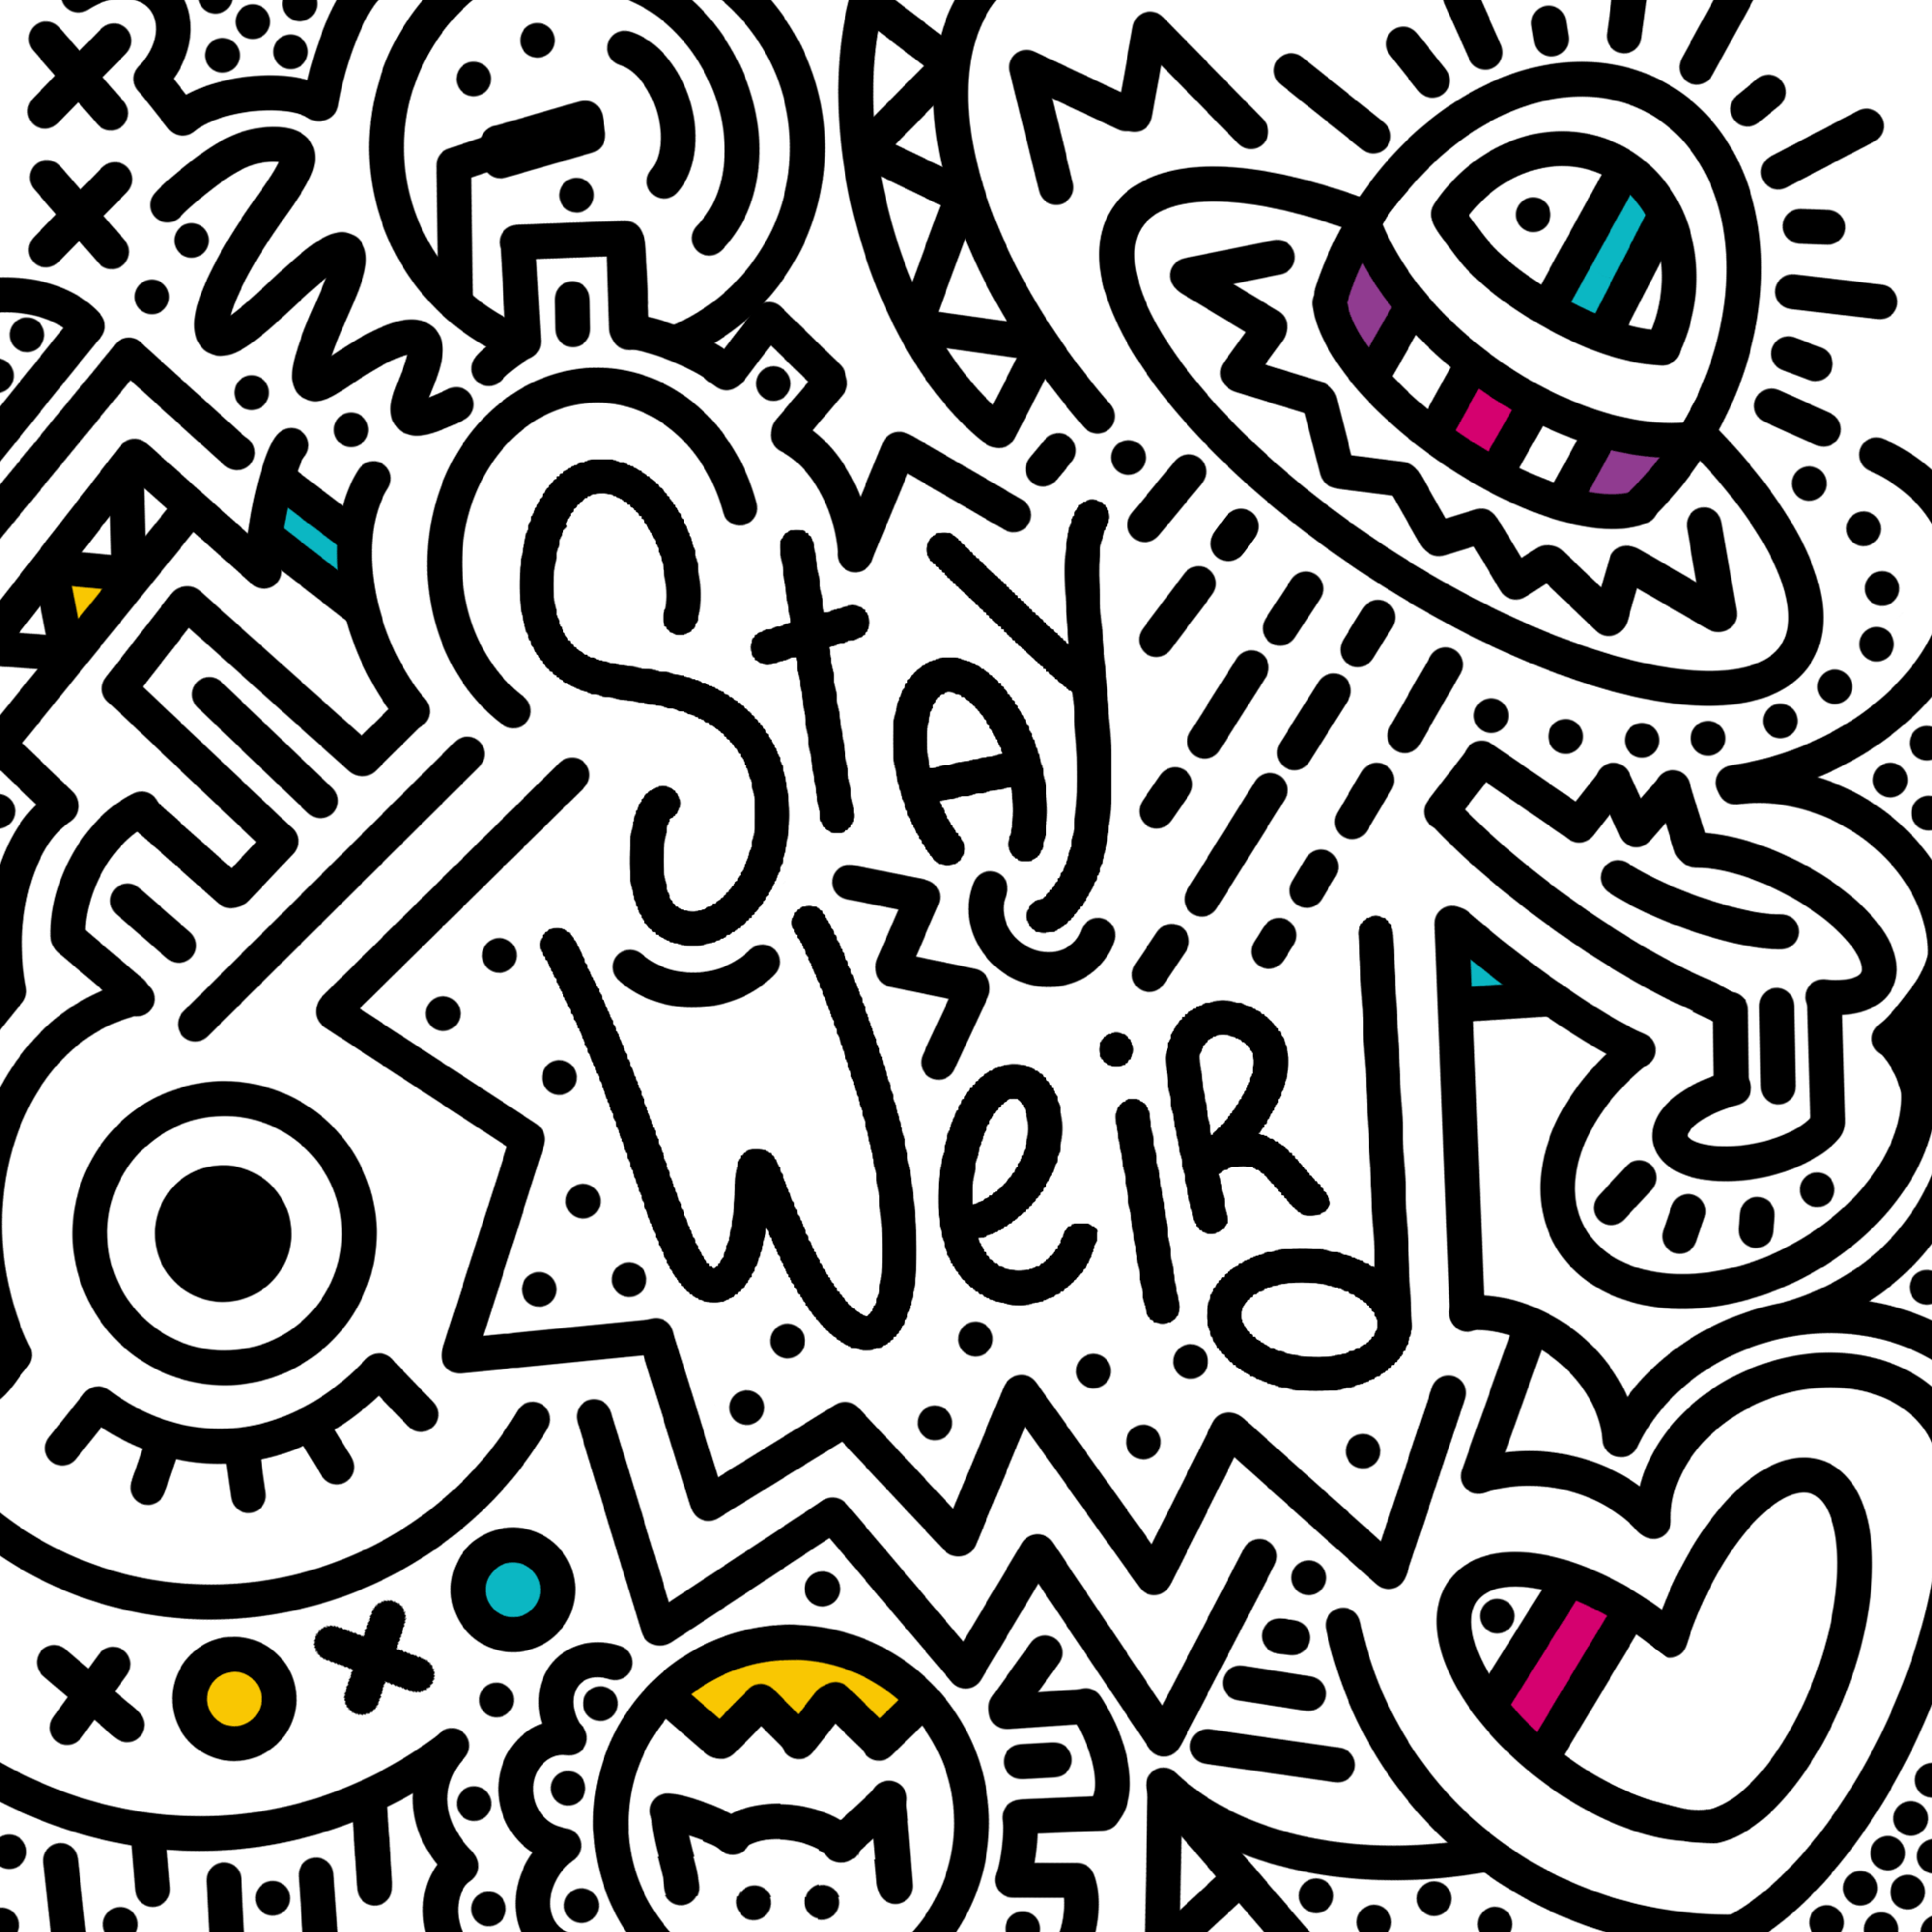 StAy
WeiRd